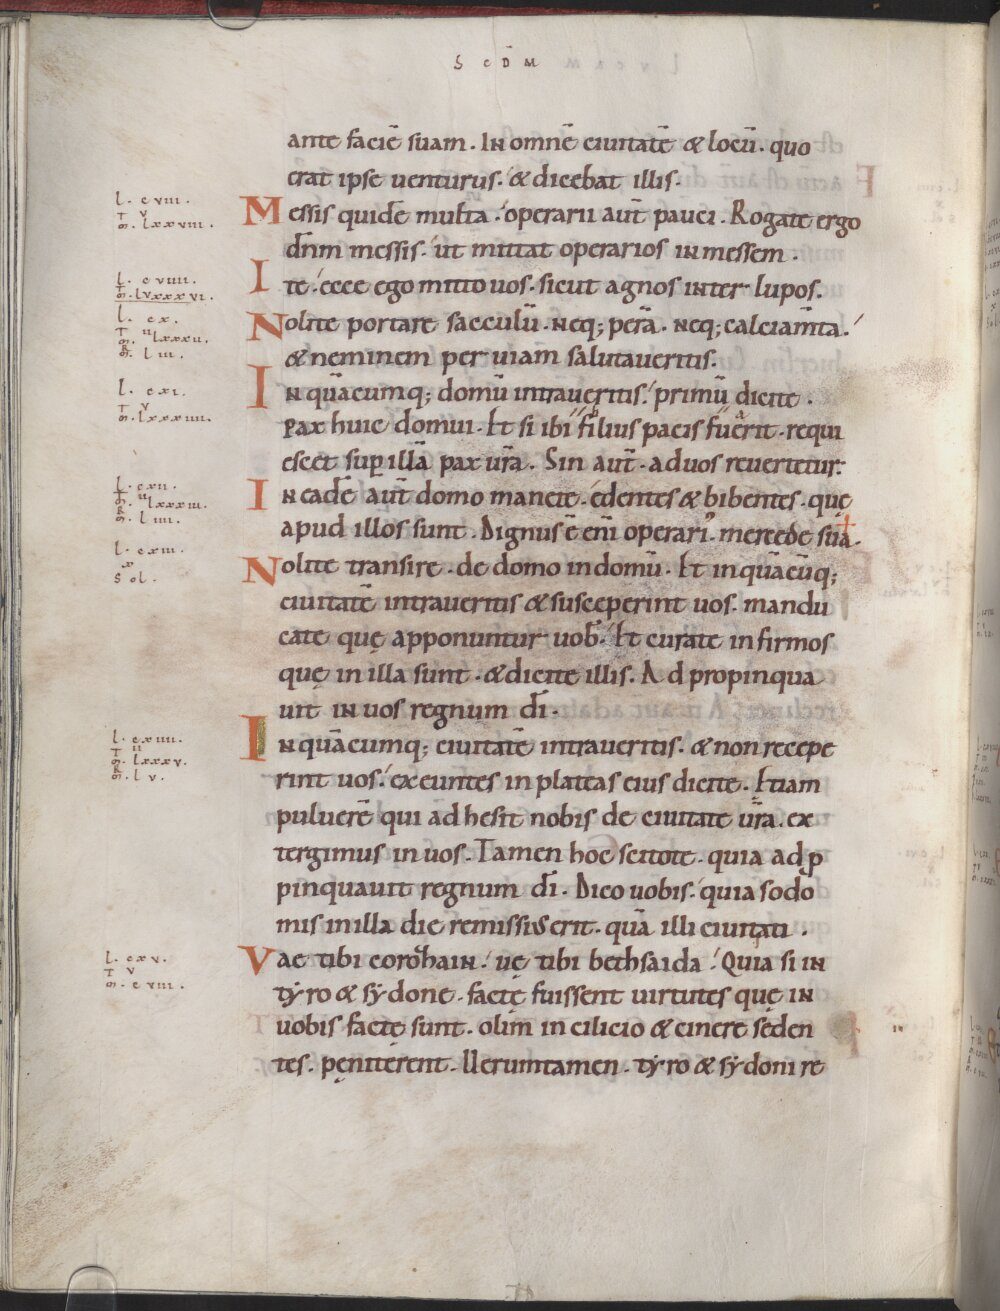 S CDM̄
ante faciē suam. In omnē ciuitatē & locū. quo
erat ipse uenturus. & dicebat illis.
l. c viii.
T v
m. lxxviii.
Messis quidē multa. operarii aut̄ pauci. Rogate ergo
dn̄m messis. ut mittat operarios in messem.
l. c viiii.
m. lvxxxvi.
Ite. ecce ego mitto uos. sicut agnos inter lupos.
l. cx.
T ii
m. lxxxii.
R l iii.
Nolite portare sacculū. neq; perā. neq; calciam̄ta.
& neminem per uiam salutaueritis.
l. cxi.
T v
m. lxxxiiii.
In quācumq; domū intraueritis. primū dicite.
pax huic domui. Et si ibi filius pacis fuerit. requi
escet sup illā pax ur̄a. Sin aut̄. ad uos reuertetur.
l. cxii.
T ii
m. lxxxiii.
R l iiii.
In eadē aut̄ domo manete. edentes & bibentes. quę
apud illos sunt. Dignus ē eni̅ operari'. mercede sua.
l. cxiii.
x
Sol.
Nolite transire. de domo in domū. Et in quācūq;
ciuitatē intraueritis & susceperint uos. mandu
cate quę apponuntur uob̄. Et curate infirmos
quę in illa sunt. & dicite illis. Ad propinqua
uit in uos regnum dī.
l. cxiiii.
T ii
m. lxxxv.
R l v.
In quācumq; ciuitatē intraueritis. & non recepe
rint uos. exeuntes in plateas eius dicite. Etiam
puluerē qui adhesit nobis de ciuitate ur̄a. ex
tergimus in uos. Tamen hoc scitote. quia adp
pinquauit regnum dī. Dico uobis. quia sodo
mis in illa die remissius erit. quā illi ciuitati.
l. cxv.
T v
m. c viii.
Vae tibi corohain. uę tibi bethsaida. Quia si in
tyro & sydone. factę fuissent uirtutes quę in
uobis factę sunt. olim in cilicio & cinere seden
tes. pęniterent. Uerumtamen. tyro & sydoni re